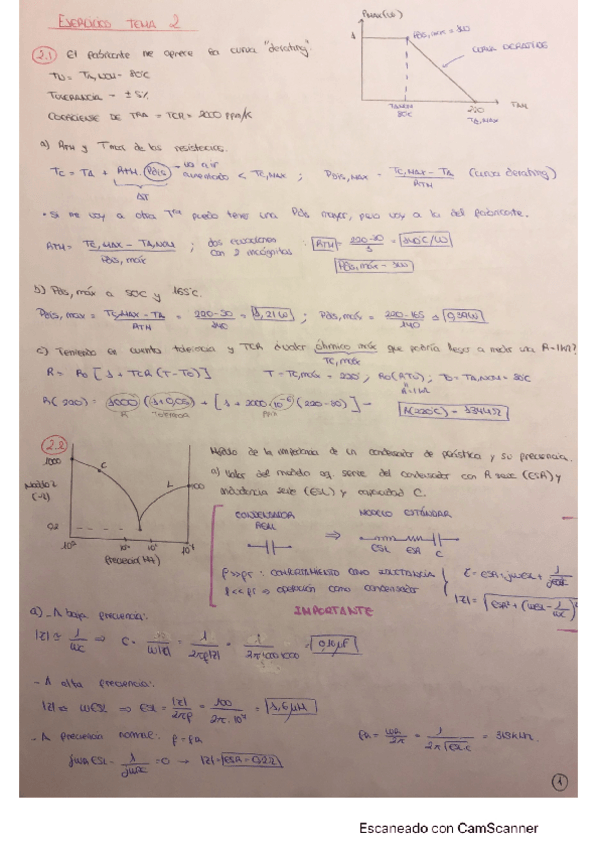 EJERCICIOS TEMA 2
2.1 El fabricante me ofrece la curva "derating".
TN = TA,NOM = 80ºC
TOLERANCIA = ± 5%
COEFICIENTE DE TRA = TCR = 2000 PPM/K
PMAX (W)
Pdis, max = 1W
CURVA DERATING
TA,NOM
80ºC
220
TA,MAX
TAM
a) ATH y Tmax de las resistencias.
TC = TA + ATH · Pdis
< TC,MAX ; Pdis,MAX = TC,MAX - TA / ATH (curva derating)
ΔT
• Si me voy a otra Tra puedo tener una Pdis mayor, pero voy a la del fabricante.
ATH = TC,MAX - TA,NOM / Pdis, máx ; dos ecuaciones con 2 incógnitas
b) Pdis, máx a 50ºC y 165ºC.
Pdis, max = TC,MAX - TA / ATH = ; Pdis, máx = 220 - 165 / 140 = 0,39W
c) Teniendo en cuenta tolerancia y TCR ¿valor óhmico máx que podría llegar a medir una R=1kΩ?
TC,máx
R = Ro [1 + TCR (T - To)]
T = TC,máx = 220º ; Ro (RTN) ; To = TA,NOM = 80ºC
R=1kΩ
R(220) = 1000 (1+0,05) + [1 + 2000·10⁻⁶ (220 - 80)] = R(220ºC) = 1344Ω
R TOLERANCIA PPM
2.2
Módulo de la impedancia de un condensador de plástico y su frecuencia.
a) Valor del modelo eq. serie del condensador con R serie (ESR) y
inductancia serie (ESL) y capacidad C.
1000
C
L
100
Módulo Z
(Ω)
0.2
Frecuencia (kHz)
CONDENSADOR REAL ⇒ MODELO ESTÁNDAR
ESL ESR C
f>>fr : COMPORTAMIENTO COMO INDUCTANCIA
f<<fr ⇒ operación como condensador
Z = ESR + jωESL + 1/jωC
|Z| = √ESR² + (ωESL - 1/ωC)²
IMPORTANTE
a) - A baja frecuencia:
|Z| ≅ 1/ωC ⇒ C = 1/ω|Z| = 1/2πf|Z| = 1/2π·1000·1000 = 0,16μF
- A alta frecuencia:
|Z| ≅ ωESL ⇒ ESL = |Z|/2πf = 100/2π·10⁷ = 1,6μH
- A frecuencia : f = fR
fR = ωR/2π = 1/2π√ESL·C =
jωR ESL - 1/jωC = 0 → |Z| = ESR = 0.2Ω
1
Escaneado con CamScanner